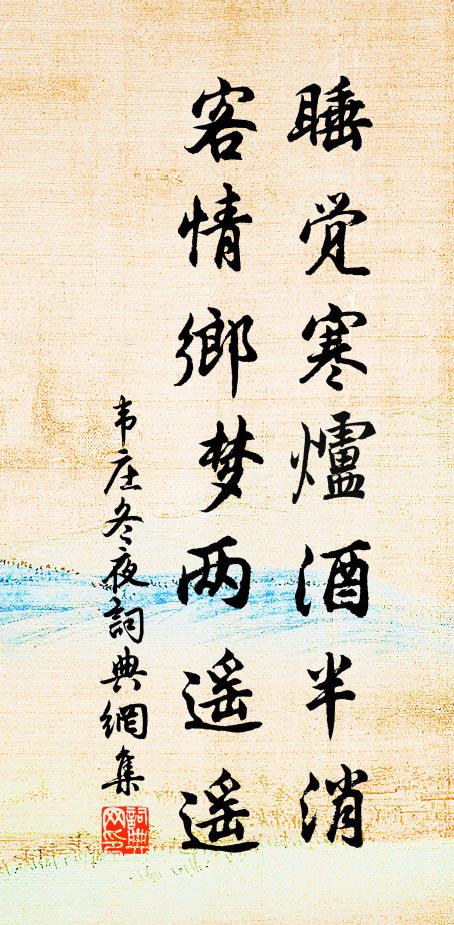 睡觉寒爐酒半消
客情鄉梦两遥遥
韦庄冬夜詞典網集
詞典网印